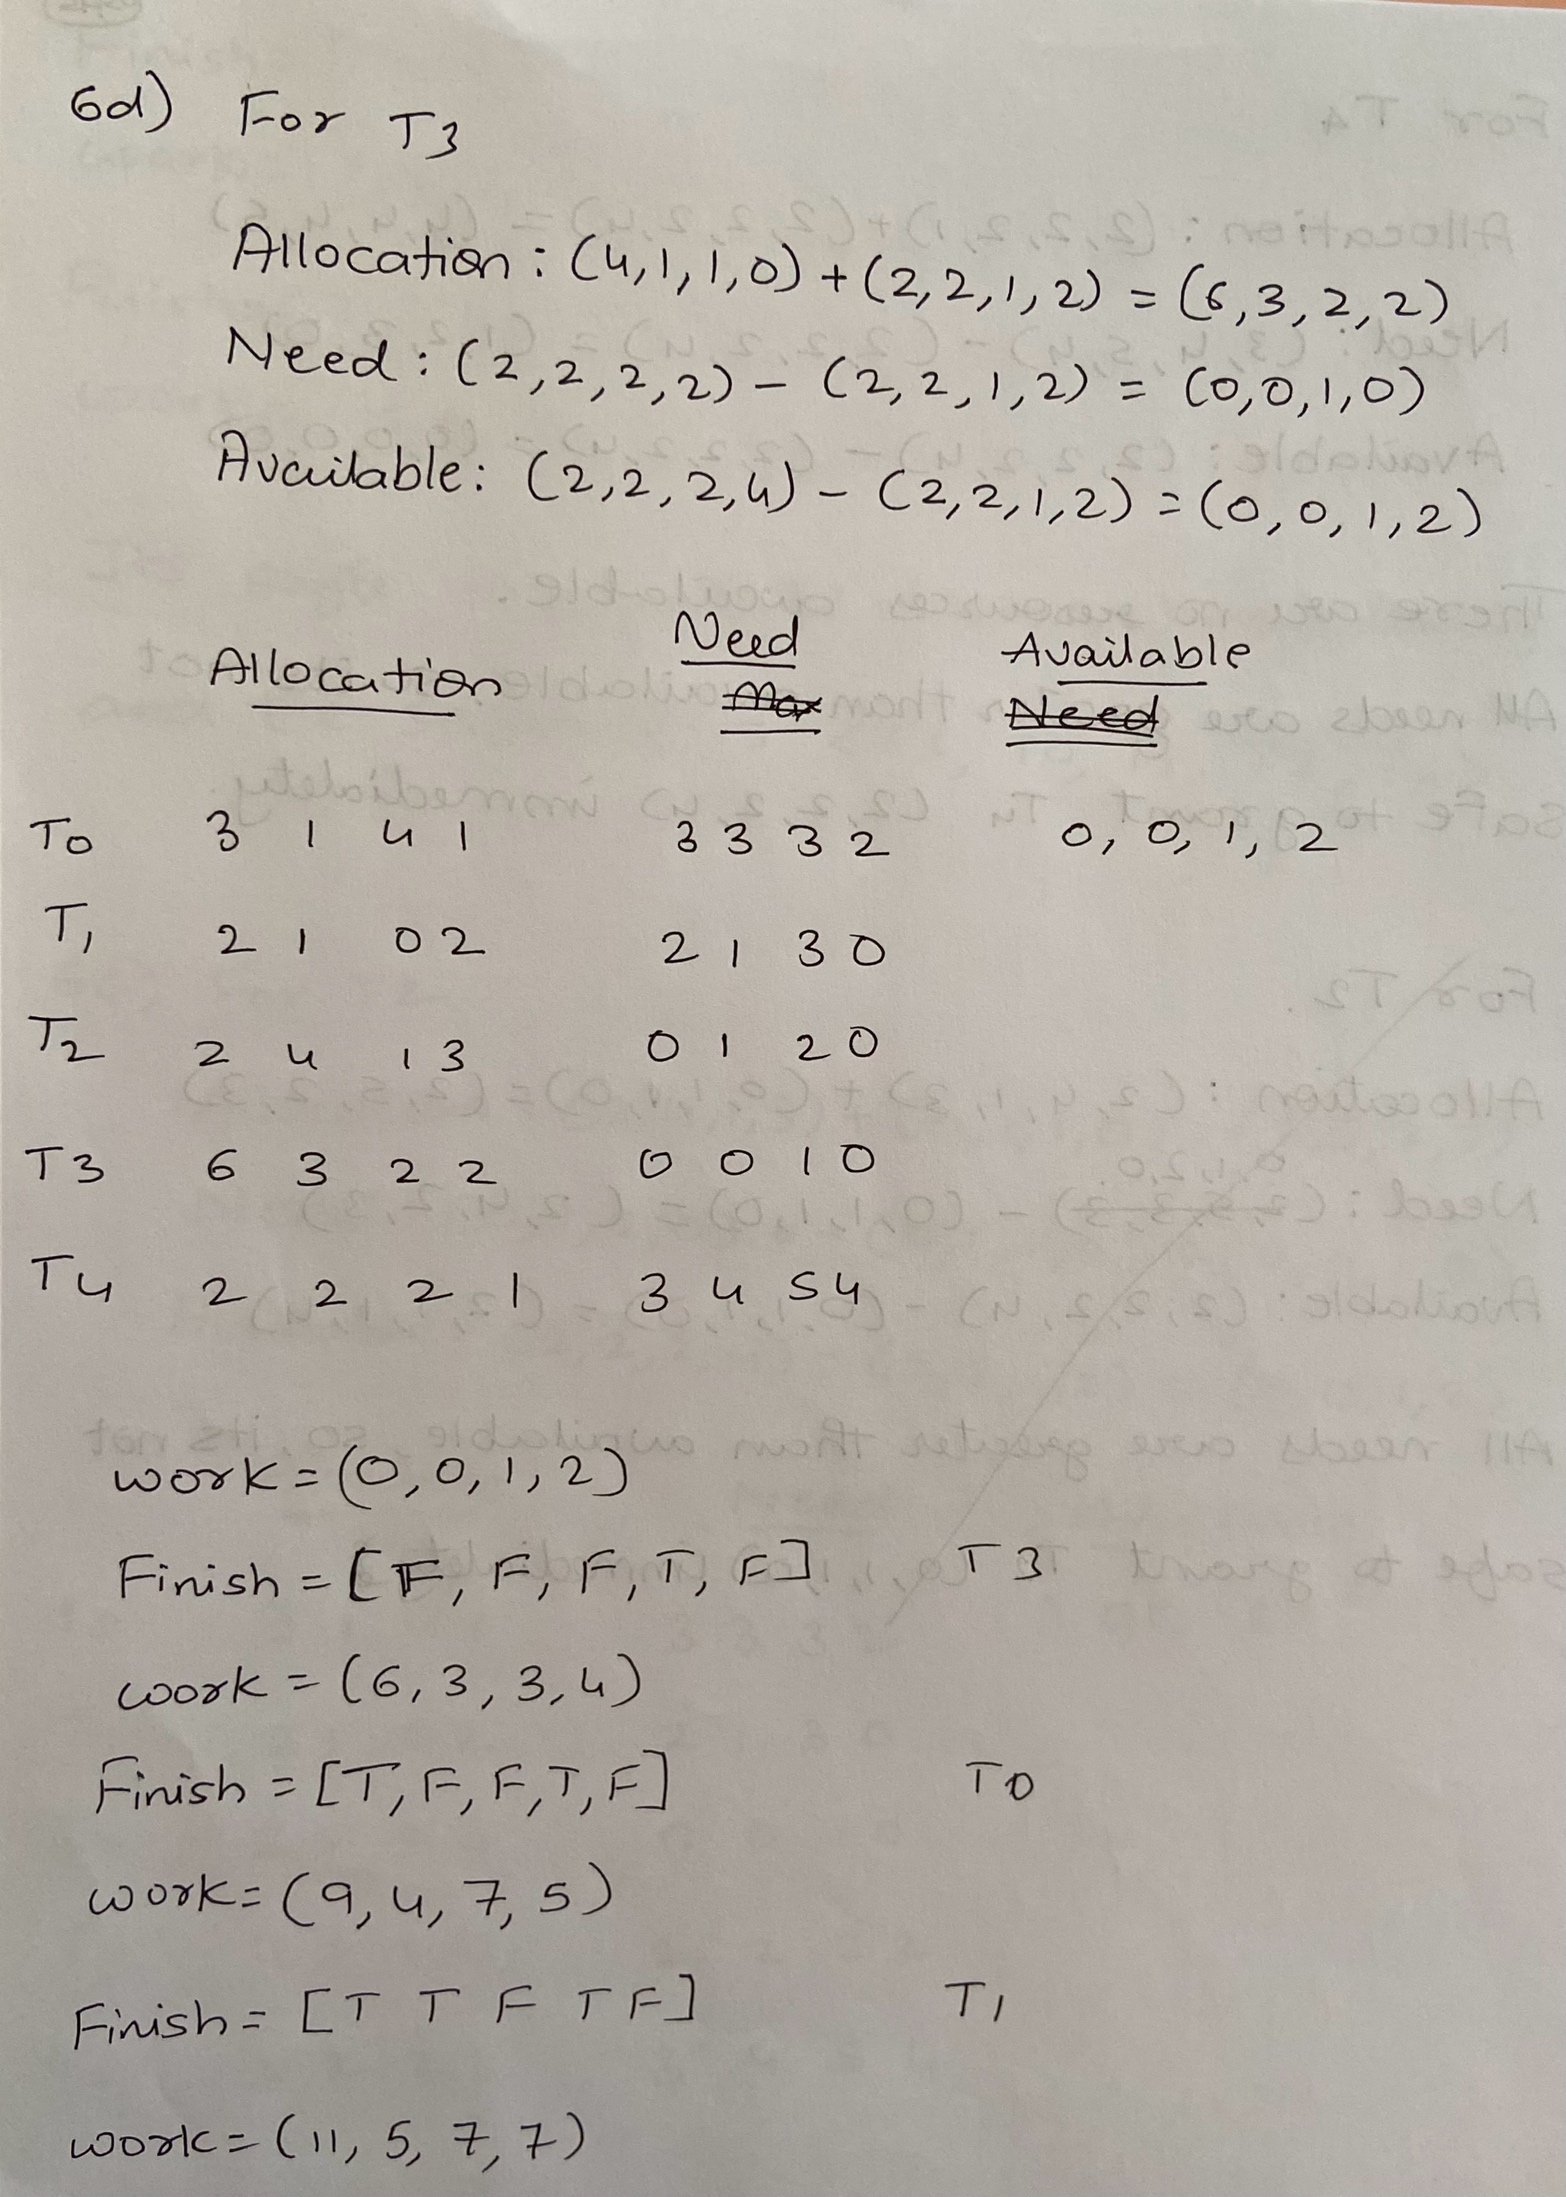 6d) For T3
Allocation : (4,1,1,0) + (2,2,1,2) = (6,3,2,2)
Need : (2,2,2,2) - (2,2,1,2) = (0,0,1,0)
Available: (2,2,2,4) - (2,2,1,2) = (0,0,1,2)
Allocation Need Available
Max Need
T0 3 1 4 1 3 3 3 2 0, 0, 1, 2
T1 2 1 0 2 2 1 3 0
T2 2 4 1 3 0 1 2 0
T3 6 3 2 2 0 0 1 0
T4 2 2 2 1 3 4 5 4
work = (0,0,1,2)
Finish = [F, F, F, T, F] T3
work = (6,3,3,4)
Finish = [T, F, F, T, F] T0
work = (9,4,7,5)
Finish = [T T F T F] T1
work = (11, 5, 7, 7)